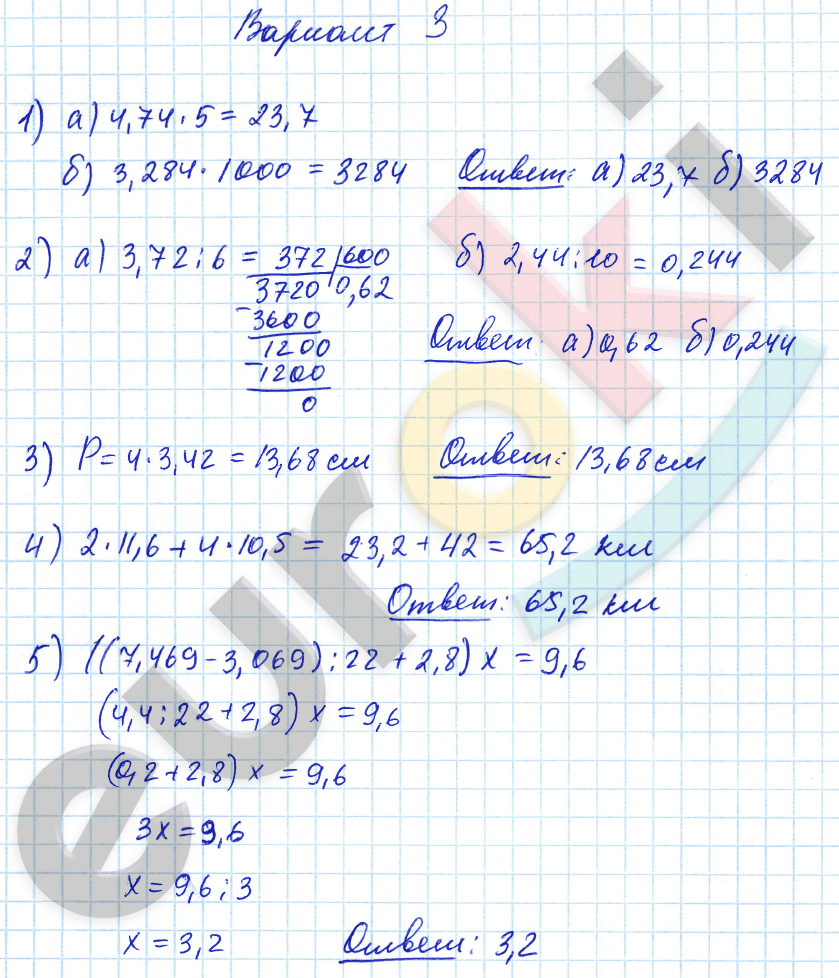 Вариант 3
1) а) 4,74 · 5 = 23,7
б) 3,284 · 1000 = 3284 Ответ: а) 23,7 б) 3284
2) а) 3,72 : 6 = 372 | 600 б) 2,44 : 10 = 0,244
3720 | 0,62
- 3600
1200 Ответ: а) 0,62 б) 0,244
- 1200
0
3) P = 4 · 3,42 = 13,68 см Ответ: 13,68 см
4) 2 · 11,6 + 4 · 10,5 = 23,2 + 42 = 65,2 км
Ответ: 65,2 км
5) ((7,469 - 3,069) : 22 + 2,8) x = 9,6
(4,4 : 22 + 2,8) x = 9,6
(0,2 + 2,8) x = 9,6
3x = 9,6
x = 9,6 : 3
x = 3,2 Ответ: 3,2
euroki